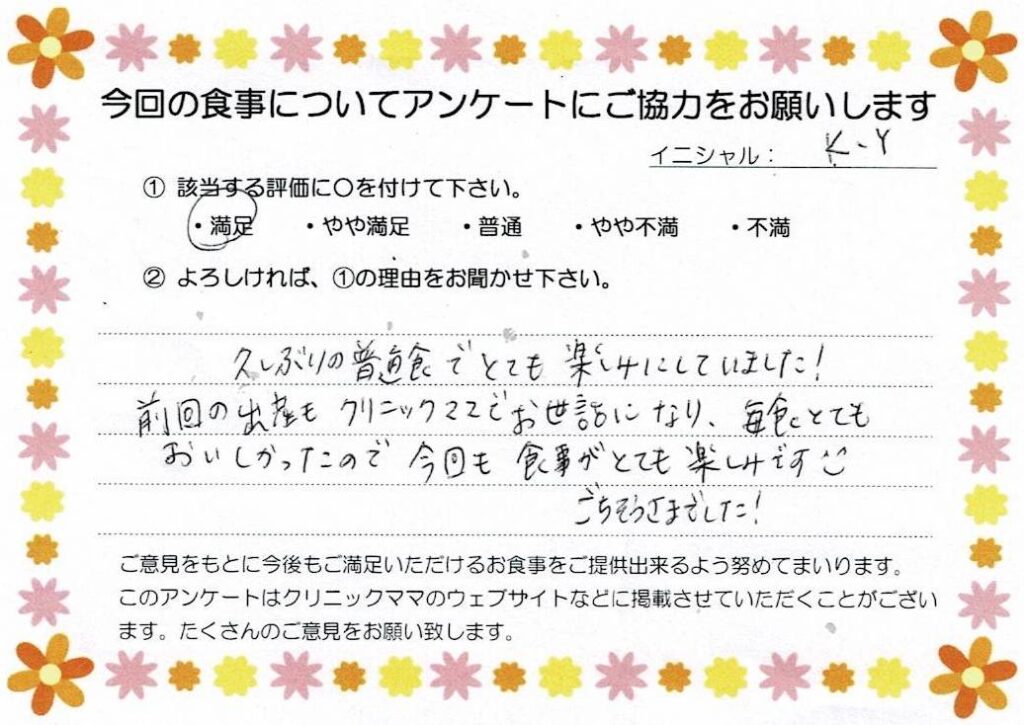 今回の食事についてアンケートにご協力をお願いします
イニシャル： K.Y
① 該当する評価に○を付けて下さい。
・満足 ・やや満足 ・普通 ・やや不満 ・不満
② よろしければ、①の理由をお聞かせ下さい。
久しぶりの普通食でとても楽しみにしていました！
前回の出産もクリニックママでお世話になり、毎食とても
おいしかったので今回も食事がとても楽しみです
ごちそうさまでした！
ご意見をもとに今後もご満足いただけるお食事をご提供出来るよう努めてまいります。
このアンケートはクリニックママのウェブサイトなどに掲載させていただくことがござい
ます。たくさんのご意見をお願い致します。